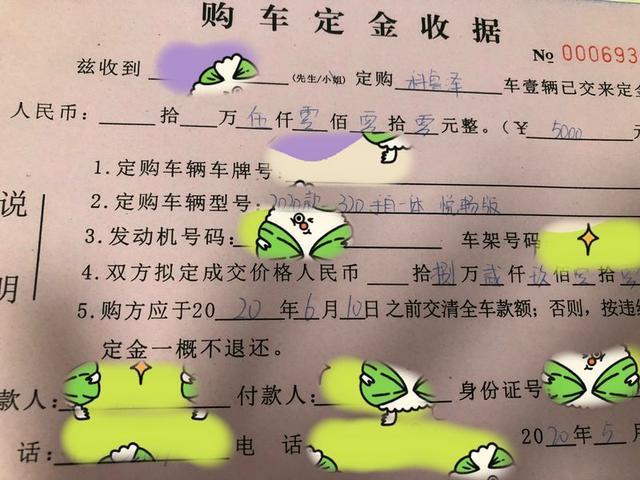 购车定金收据
No 000693
兹收到 (先生/小姐) 定购 科鲁泽 车壹辆已交来定金
人民币： 拾 万 伍 仟 零 佰 零 拾 零 元整。（￥ 5000 元
说
明
1.定购车辆车牌号
2.定购车辆型号: 2020款 320 手自一体 悦畅版
3.发动机号码: 车架号码
4.双方拟定成交价格人民币 拾 捌 万 贰 仟 玖 佰 零 拾
5.购方应于20 20 年 6 月 10 日之前交清全车款额；否则，按违
定金一概不退还。
款人: 付款人: 身份证号
话: 电 话 2020年 5 月